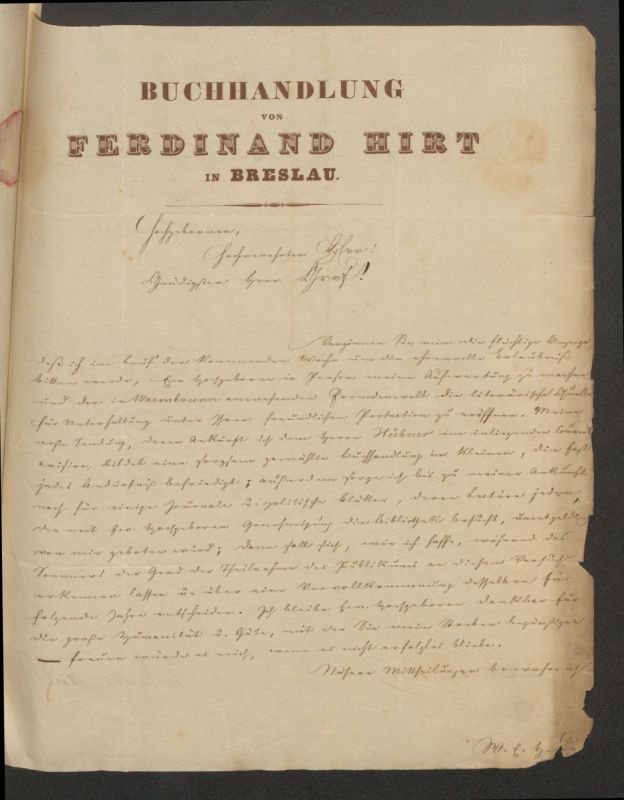 BUCHHANDLUNG
VON
FERDINAND HIRT
IN BRESLAU.
Hochgeborner,
Hochverehrter Herr!
Gnädigster Herr Graf!
Vergönnen Sie mir die flüchtige Anzeige
daß ich im Lauf der kommenden Woche um die ehrenvolle Erlaubniß
bitten werde, Ew Hochgeboren in Person meine Aufwartung zu machen
und der in Warmbrunn anwesenden Fremdenwelt die literärische Quelle
für Unterhaltung unter Ihrer freundlichen Protection zu eröffnen. Meine
erste Sendung, deren Ankunft ich dem Herrn Hübner im inliegenden
avisire, bildet eine sorgsam gewählte Buchhandlung im Kleinen, die fast
jedes Bedürfniß befriedigt; außerdem sorge ich bis zu meiner Ankunft
noch für einige Journale u. politische Blätter, deren Lectüre jedem,
der mit Ew. Hochgeboren Genehmigung die Bibliothek besucht, unentgeldlich
von mir geboten wird; dann soll sich, wie ich hoffe, während des
Sommers der Grad der Theilnahme des Publikums an diesem Versuch
erkennen lassen u. über eine Vervollkommnung desselben für
folgende Jahre entscheiden. Ich bleibe Ew. Hochgeboren dankbar für
die große Humanität u. Güte, mit der Sie mein Streben begünstigen
— freuen würde es mich, wenn es nicht erfolglos bliebe.
Nähere Mittheilungen bewahre ich
W. E. H.